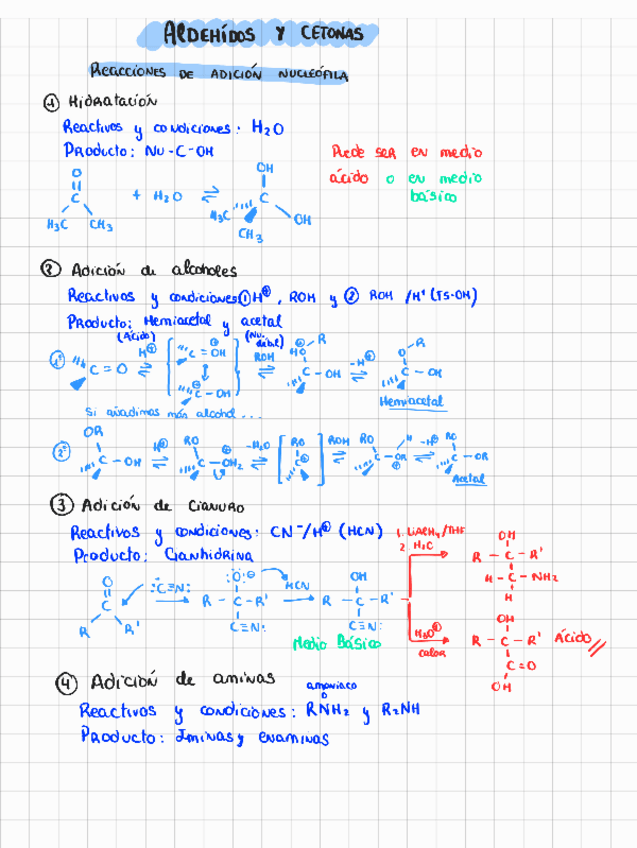 ALDEHÍDOS Y CETONAS
REACCIONES DE ADICIÓN NUCLEÓFILA
① Hidratación
Reactivos y condiciones: H2O
Producto: Nu-C-OH
Puede ser en medio
ácido o en medio
básico
O
C
H3C CH3
+ H2O ⇌
OH
H3C C OH
CH3
② Adición de alcoholes
Reactivos y condiciones: ① H⊕, ROH y ② ROH /H⁺ (TS-OH)
Producto: Hemiacetal y acetal
(Ácido)
(Nu. débil)
1º C=O H⊕ ⇌ [C=OH ⊕ ↔ ⊕C-OH] ROH ⇌ HO⊕-R C-OH -H⊕ ⇌ O-R C-OH
Hemiacetal
Si añadimos más alcohol...
2º OR C-OH H⊕ ⇌ RO C-OH2 ⊕ -H2O ⇌ [RO C⊕] ROH ⇌ RO C-OR H ⊕ -H⊕ ⇌ RO C-OR
Acetal
③ Adición de cianuro
Reactivos y condiciones: CN⁻/H⊕ (HCN)
Producto: Cianhidrina
1. LiAlH4/THF
2. H2O
OH
R-C-R'
H-C-NH2
H
O
C
R R'
:C≡N:
:O:⊖
R-C-R'
C≡N:
HCN
OH
R-C-R'
C≡N:
Medio Básico
H3O⊕
calor
OH
R-C-R' Ácido
C=O
OH
④ Adición de aminas
amoniaco
o
Reactivos y condiciones: RNH2 y R2NH
Producto: Iminas y enaminas